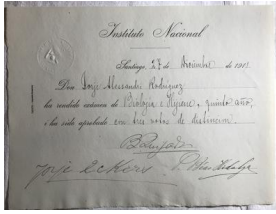 Instituto Nacional
Santiago 27 de Diciembre de 191
Don Jorge Alessandri Rodriguez
ha rendido exámen de Biología e Hijiene, quinto año,
i ha sido aprobado con tres votos de distincion
José Eckers